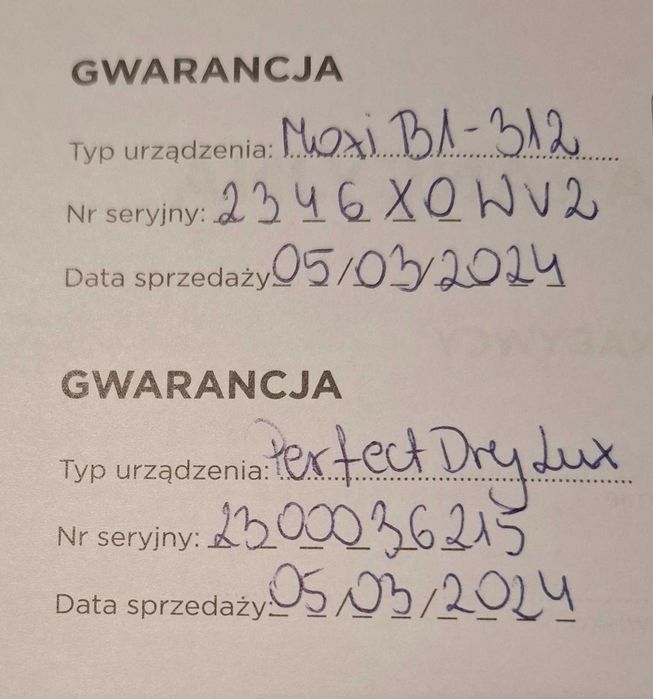 GWARANCJA
Typ urządzenia: Moxi B1-312
Nr seryjny: 2346X0WV2
Data sprzedaży 05/03/2024
GWARANCJA
Typ urządzenia: Perfect Dry Lux
Nr seryjny: 2300036215
Data sprzedaży: 05/03/2024